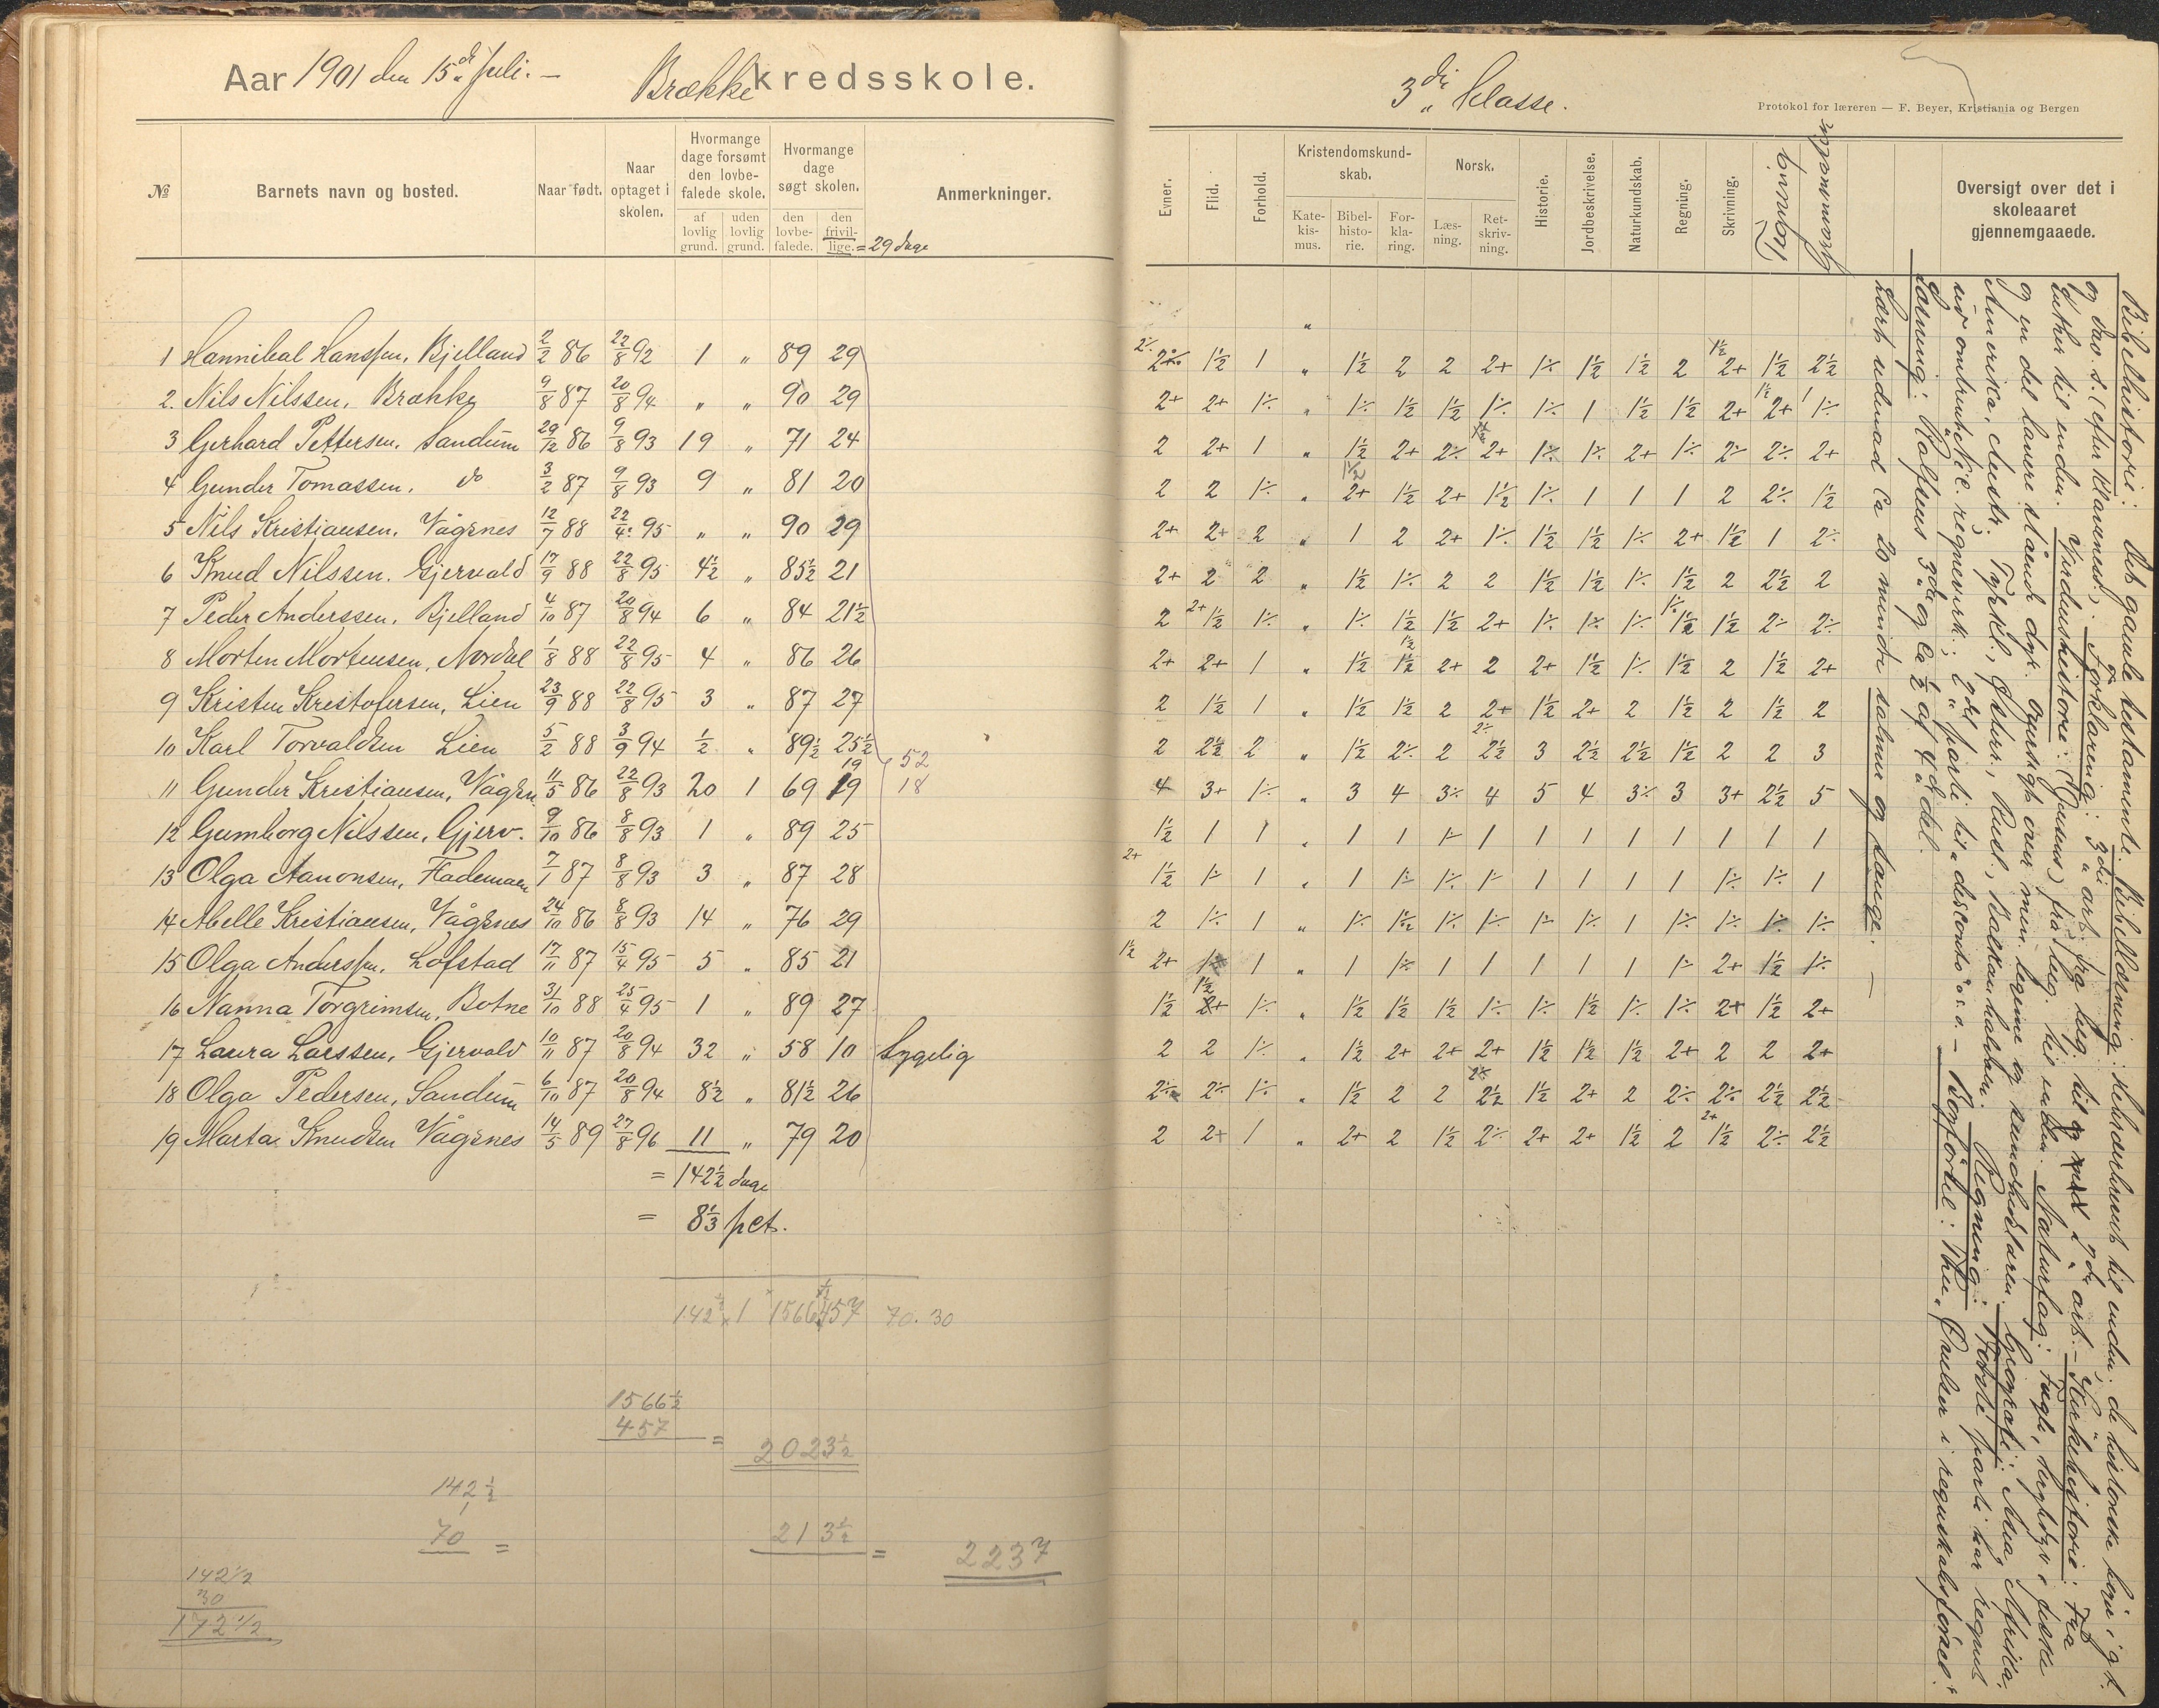 Aar 1901 den 15de Juli. – Brække kredsskole.
№ Barnets navn og bosted. Naar født. Naar optaget i skolen. Hvormange dage forsømt den lovbefalede skole. af lovlig grund. uden lovlig grund. Hvormange dage søgt skolen. den lovbefalede. den frivillige. = 29 dage Anmerkninger.
1 Hannibal Hanssen, Bjelland 2/2 86 22/8 92 1 " 89 29
2. Nils Nilssen, Brække 9/8 87 20/8 94 " " 90 29
3 Gerhard Pettersen, Sandum 29/12 86 9/8 93 19 " 71 24
4 Gunder Tomassen, do 3/2 87 9/8 93 9 " 81 20
5 Nils Kristiansen, Vågsnes 12/7 88 22/4 95 " " 90 29
6 Knud Nilssen. Gjervald 17/9 88 22/8 95 4½ " 85½ 21
7 Peder Anderssen, Bjelland 4/10 87 20/8 94 6 " 84 21½
8 Morten Mortensen, Nordal 1/8 88 22/8 95 4 " 86 26
9 Kristen Kristofersen, Lien 23/9 88 22/8 95 3 " 87 27
10 Karl Torvaldsen Lien 5/2 88 3/9 94 ½ " 89½ 25½
19 52
11 Gunder Kristiansen, Vågsn. 11/5 86 22/8 93 20 1 69 19 18
12 Gumborg Nilssen, Gjerv. 9/10 86 8/8 93 1 " 89 25
13 Olga Aanonsen, Flademoen 7/1 87 8/8 93 3 " 87 28
14 Abelle Kristiansen, Vågsnes 24/10 86 8/8 93 14 " 76 29
15 Olga Anderssen, Lofstad 17/11 87 15/4 95 5 " 85 21
16 Nanna Torgrimsen, Botne 31/10 88 25/4 95 1 " 89 27
17 Laura Larssen, Gjervald 10/11 87 20/8 94 32 " 58 10 Sygelig
18 Olga Pedersen, Sandum 6/10 87 20/8 94 8½ " 81½ 26
19 Marta Knudsen Vågsnes 14/5 89 27/8 96 11 " 79 20
= 142½ dage
= 8⅓ pct.
142½ 1 1566½ 457 70. 30
1566½
457 = 2023½
142½
70 = 213½ = 2237
142½
30
172½
3die Klasse.
Protokol for læreren — F. Beyer, Kristiania og Bergen
Evner. Flid. Forhold. Kristendomskundskab. Katekismus. Bibelhistorie. Forklaring. Norsk. Læsning. Retskrivning. Historie. Jordbeskrivelse. Naturkundskab. Regning. Skrivning. Tegning Gramatik Oversigt over det i skoleaaret gjennemgaaede.
2÷ 1½ 1 " 1½ 2 2 2+ 1÷ 1½ 1½ 2 2+ 1½ 2½
2+ 2+ 1÷ " 1÷ 1½ 1½ 1÷ 1÷ 1 1½ 1½ 2+ 2+ 1÷
2 2+ 1 " 1½ 2+ 2÷ 2+ 1÷ 1÷ 2+ 1÷ 2÷ 2÷ 2+
2 2 1÷ " 2+ 1½ 2+ 1½ 1÷ 1 1 1 2 2÷ 1½
2+ 2+ 2 " 1 2 2+ 1÷ 1½ 1½ 1÷ 2+ 1½ 1 2÷
2+ 2 2 " 1½ 1÷ 2 2 1½ 1½ 1÷ 1½ 2 2½ 2
2 1½ 1÷ " 1÷ 1½ 1½ 2+ 1÷ 1÷ 1÷ 1½ 1½ 2÷ 2÷
2+ 2+ 1 " 1½ 1½ 2+ 2 2+ 1½ 1÷ 1½ 2 1½ 2+
2 1½ 1 " 1½ 1½ 2 2+ 1½ 2+ 2 1½ 2 1½ 2
2 2½ 2 " 1½ 2÷ 2 2½ 3 2½ 2½ 1½ 2 2 3
4 3+ 1÷ " 3 4 3÷ 4 5 4 3÷ 3 3+ 2½ 5
1½ 1 1 " 1 1 1÷ 1 1 1 1 1 1 1 1
1½ 1÷ 1 " 1 1÷ 1÷ 1÷ 1 1 1 1 1÷ 1÷ 1
2 1÷ 1 " 1÷ 1½ 1÷ 1÷ 1÷ 1÷ 1 1÷ 1÷ 1÷ 1÷
2+ 1÷ 1 " 1 1÷ 1 1 1 1 1 1÷ 2+ 1½ 1÷
1½ 2+ 1÷ " 1½ 1½ 1½ 1÷ 1÷ 1½ 1÷ 1÷ 2+ 1½ 2+
2 2 1÷ " 1½ 2+ 2+ 2+ 1½ 1½ 1½ 2+ 2 2 2+
2÷ 2÷ 1÷ " 1½ 2 2 2½ 1½ 2+ 2 2÷ 2÷ 2½ 2½
2 2+ 1 " 2+ 2 1½ 2÷ 2+ 2+ 1½ 2 1½ 2÷ 2½
Bibelhistorie: Det gamle testamente. Bibellæsning: de historiske bøger i g. t.
og Dav. s. (efter Klaveness). Forklaring: 3die art. fra beg. til og med 2den art. – Kirkehistorie: Fra
Luther til enden. Verdenshistorie: (Jensens) fra beg. til enden. Naturfag: Fugle, krybdyr, fiske
og en del lavere stående dyr. oversigt over men. legeme og sundhedslære. Geografi: Asia, Afrika,
Amerika, Austr. Tyskl., Østerr., Rusl., Balkanhalvøen. Regning: Første parti har regnet
ud omtrent Nic. regneverk; 2det parti til disconto o. s. v. – Bogførsel: Øvelser i regnskabsførsel.
Læsning: Rolfsens 3die og Ca ½ af 4de del.
Lært udenad Ca 20 mindre salmer og sange. –